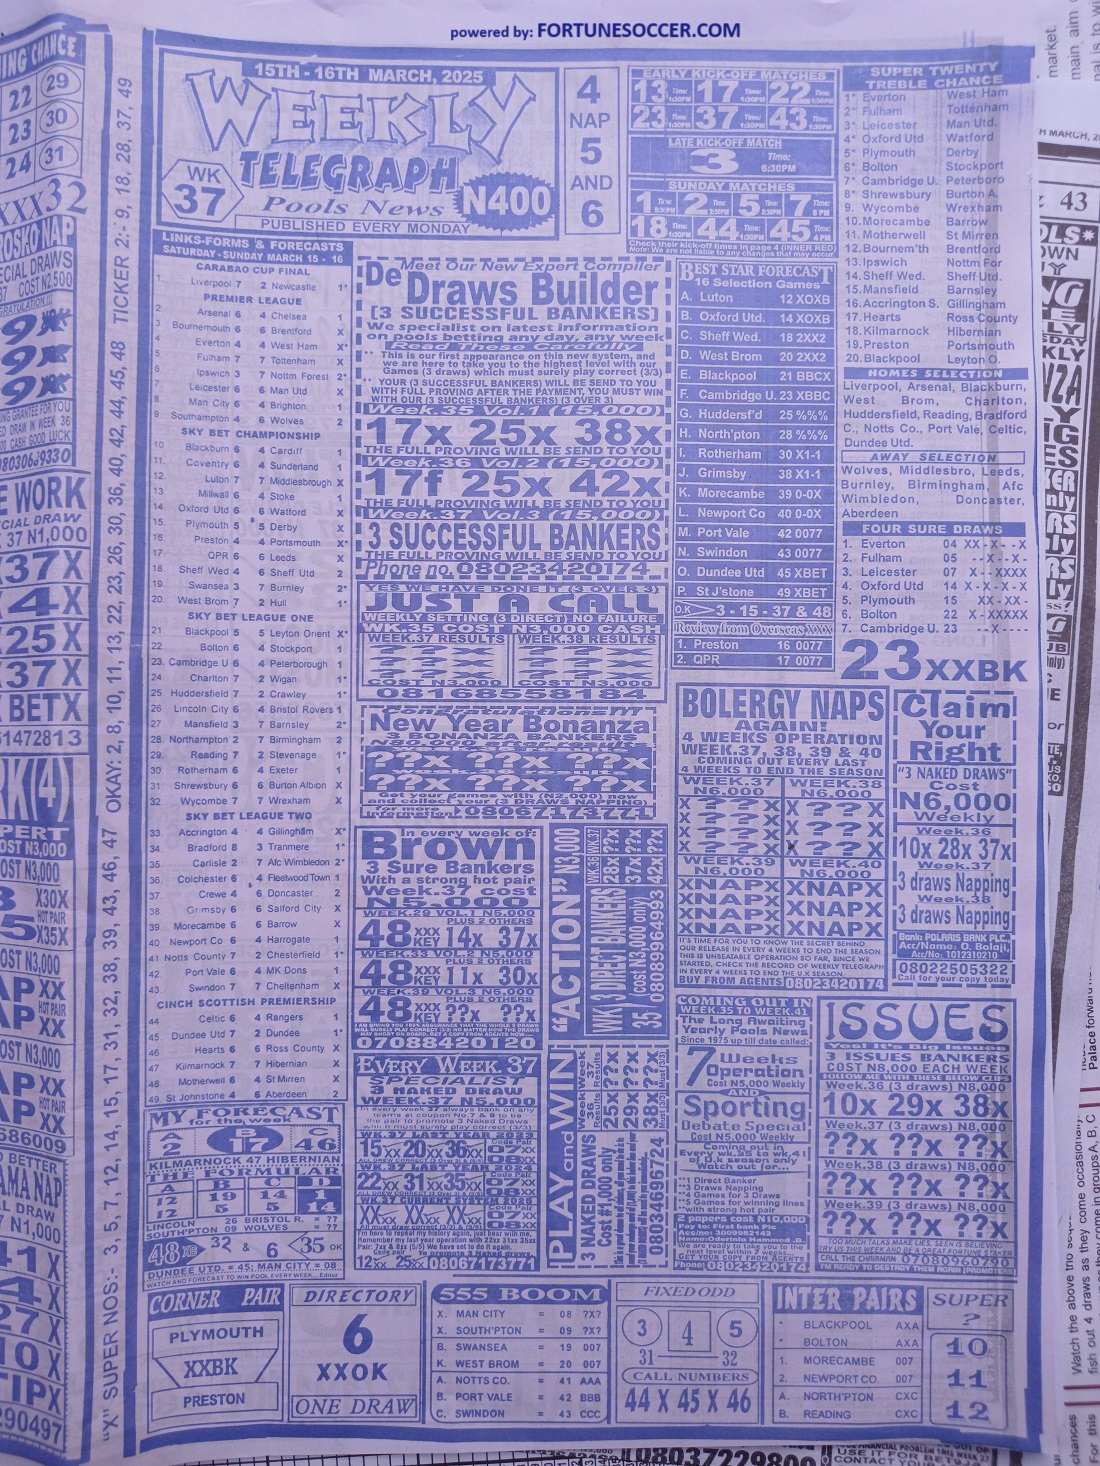 powered by: FORTUNESOCCER.COM
15TH - 16TH MARCH, 2025
WEEKLY
TELEGRAPH
WK 37
Pools News
N400
PUBLISHED EVERY MONDAY
4
NAP
5
AND
6
EARLY KICK-OFF MATCHES
13 Time: 1:30PM 17 Time: 1:30PM 22 Time: 1:30PM
23 Time: 1:30PM 37 Time: 1:30PM 43 Time: 1:30PM
LATE KICK-OFF MATCH
3 Time: 6:30PM
SUNDAY MATCHES
1 2 5 7
18 44 45
Check their kick-off times in page 4 (INNER RED)
Note: We are not liable to any changes that may occur.
SUPER TWENTY
TREBLE CHANCE
1* Everton West Ham
2* Fulham Tottenham
3* Leicester Man Utd.
4* Oxford Utd Watford
5* Plymouth Derby
6* Bolton Stockport
7* Cambridge U. Peterboro
8* Shrewsbury Burton A.
9. Wycombe Wrexham
10. Morecambe Barrow
11. Motherwell St Mirren
12. Bournem'th Brentford
13. Ipswich Nottm For
14. Sheff Wed. Sheff Utd.
15. Mansfield Barnsley
16. Accrington S. Gillingham
17. Hearts Ross County
18. Kilmarnock Hibernian
19. Preston Portsmouth
20. Blackpool Leyton O.
HOMES SELECTION
Liverpool, Arsenal, Blackburn,
West Brom, Charlton,
Huddersfield, Reading, Bradford
C., Notts Co., Port Vale, Celtic,
Dundee Utd.
AWAY SELECTION
Wolves, Middlesbro, Leeds,
Burnley, Birmingham, Afc
Wimbledon, Doncaster,
Aberdeen
FOUR SURE DRAWS
1. Everton 04 XX - X - - X
2. Fulham 05 - - X - X -
3. Leicester 07 X - - XXXX
4. Oxford Utd 14 X - X - X - X
5. Plymouth 15 XX - XX -
6. Bolton 22 X - XXXXX
7. Cambridge U. 23 - - X - - - -
23XXBK
LINKS-FORMS & FORECASTS
SATURDAY - SUNDAY MARCH 15 - 16
CARABAO CUP FINAL
1. Liverpool 7 2 Newcastle 1*
PREMIER LEAGUE
2. Arsenal 6 4 Chelsea 1
3. Bournemouth 6 6 Brentford X
4. Everton 4 4 West Ham X*
5. Fulham 7 7 Tottenham X
6. Ipswich 3 7 Nottm Forest 2*
7. Leicester 6 6 Man Utd X
8. Man City 6 4 Brighton 1
9. Southampton 4 6 Wolves 2
SKY BET CHAMPIONSHIP
10 Blackburn 6 4 Cardiff 1
11. Coventry 6 4 Sunderland 1
12. Luton 7 7 Middlesbrough X
13. Millwall 6 4 Stoke 1
14. Oxford Utd 6 6 Watford X
15. Plymouth 5 5 Derby X
16. Preston 4 4 Portsmouth X*
17 QPR 6 6 Leeds X
18. Sheff Wed 4 6 Sheff Utd 2
19. Swansea 3 7 Burnley 2*
20. West Brom 7 2 Hull 1*
SKY BET LEAGUE ONE
21 Blackpool 5 5 Leyton Orient X*
22 Bolton 6 4 Stockport 1
23. Cambridge U 6 4 Peterborough 1
24 Charlton 7 2 Wigan 1*
25 Huddersfield 7 2 Crawley 1*
26 Lincoln City 6 4 Bristol Rovers 1
27 Mansfield 3 7 Barnsley 2*
28. Northampton 2 7 Birmingham 2
29. Reading 7 2 Stevenage 1*
30 Rotherham 6 4 Exeter 1
31 Shrewsbury 6 6 Burton Albion X
32 Wycombe 7 7 Wrexham X
SKY BET LEAGUE TWO
33. Accrington 4 4 Gillingham X*
34. Bradford 8 3 Tranmere 1*
35. Carlisle 2 7 Afc Wimbledon 2*
36. Colchester 6 4 Fleetwood Town 1
37. Crewe 4 6 Doncaster 2
38. Grimsby 6 6 Salford City X
39. Morecambe 6 6 Barrow X
40 Newport Co 6 4 Harrogate 1
41 Notts County 7 2 Chesterfield 1*
42. Port Vale 6 4 MK Dons 1
43. Swindon 7 7 Cheltenham X
CINCH SCOTTISH PREMIERSHIP
44 Celtic 6 4 Rangers 1
45 Dundee Utd 7 2 Dundee 1*
46 Hearts 6 6 Ross County X
47 Kilmarnock 7 7 Hibernian X
48 Motherwell 6 4 St Mirren X
49. St Johnstone 4 6 Aberdeen 2
Meet Our New Expert Compiler
De Draws Builder
[3 SUCCESSFUL BANKERS]
We specialist on latest information
on pools betting any day, any week
Read These Carefully
** This is our first appearance on this new system, and
we are here to take you to the highest level with our
Games (3 draws) which must surely play correct (3/3)
** YOUR (3 SUCCESSFUL BANKERS) WILL BE SEND TO YOU
WITH FULL PROVING AFTER THE PAYMENT, YOU MUST WIN
WITH OUR (3 SUCCESSFUL BANKERS) (3 OVER 3)
Week.35 Vol.1 (15,000)
17x 25x 38x
THE FULL PROVING WILL BE SEND TO YOU
Week.36 Vol.2 (15,000)
17f 25x 42x
THE FULL PROVING WILL BE SEND TO YOU
Week.37 Vol.3 (15,000)
3 SUCCESSFUL BANKERS
THE FULL PROVING WILL BE SEND TO YOU
Phone no. 08023420174
YES WE HAVE DONE IT (3 OVER 3)
JUST A CALL
WEEKLY SETTING (3 DIRECT) NO FAILURE
WK.35 COST N3,000 CASH
WEEK.37 RESULTS WEEK.38 RESULTS
COST N3,000 COST N3,000
08168558184
BEST STAR FORECAST
16 Selection Games
A. Luton 12 XOXB
B. Oxford Utd. 14 XOXB
C. Sheff Wed. 18 2XX2
D. West Brom 20 2XX2
E. Blackpool 21 BBCX
F. Cambridge U. 23 XBBC
G. Huddersf'd 25 %%%
H. North'pton 28 %%%
I. Rotherham 30 X1-1
J. Grimsby 38 X1-1
K. Morecambe 39 0-0X
L. Newport Co 40 0-0X
M. Port Vale 42 0077
N. Swindon 43 0077
O. Dundee Utd 45 XBET
P. St J'stone 49 XBET
O.K > 3 - 15 - 37 & 48
Review from Overseas XXX
1. Preston 16 0077
2. QPR 17 0077
Congratulations!!!
New Year Bonanza
3 BONANZA BANKERS
??x ??x ??x
??x ??x ??x
Get your games with (N2,000) now
and collect your (3 DRAWS NAPPING)
for more information 08067173771
BOLERGY NAPS
AGAIN!
4 WEEKS OPERATION
WEEK.37, 38, 39 & 40
COMING OUT EVERY LAST
4 WEEKS TO END THE SEASON
WEEK.37 WEEK.38
N6,000 N6,000
X??X X??X
X??X X??X
X??X X??X
X??X X??X
WEEK.39 WEEK.40
N6,000 N6,000
XNAPX XNAPX
XNAPX XNAPX
XNAPX XNAPX
XNAPX XNAPX
IT'S TIME FOR YOU TO KNOW THE SECRET BEHIND
OUR RELEASE IN EVERY 4 WEEKS TO END THE SEASON
THIS IS UNBEATABLE OPERATION SO FAR, SINCE WE
STARTED, CHECK THE RECORD OF WEEKLY TELEGRAPH
IN EVERY 4 WEEKS TO END THE U.K SEASON.
BUY FROM AGENTS 08023420174
Claim
Your
Right
"3 NAKED DRAWS"
Cost
N6,000
Weekly
Week.36
10x 28x 37x
Week.37
3 draws Napping
Week.38
3 draws Napping
Bank: POLARIS BANK PLC.
Acc/Name: O. Bolaji,
Acc/No: 1012310210
08022505322
Call for your copy today
In every week of:
Brown
3 Sure Bankers
With a strong hot pair
Week.37 cost
N5,000
WEEK.29 VOL.1 N5,000
PLUS 2 OTHERS
48 XXX KEY 14x 37x
WEEK.33 VOL.2 N5,000
PLUS 2 OTHERS
48 XXX KEY 11x 30x
WEEK.39 VOL.3 N5,000
PLUS 2 OTHERS
48 XXX KEY ??x ??x
07088420120
"ACTION" N3,000
WK 3 DIRECT BANKERS
35 cost N3,000 only)
WK.36 WK.37
28x ??x
37x ??x
42x ??x
08089964993
EVERY WEEK 37
SPECIALIST
3 NAKED DRAW
WEEK.37 N5,000
In every week 37 always bank on any
teams at coupon No.7 & 8 to be
the pair to promote 3 Naked Draws
WK.37 LAST YEAR 2023
15xx 20xx 36xx 07xx 08xx
WK.37 LAST YEAR 2024
22xx 31xx 35xx 07xx 08xx
WK 37 CURRENT SYSTEM 2025
XX XX XX
07xx
08xx
I'm here to repeat my history again, just bear with me.
Remember my last year operation with 22xx 31xx 35xx
Pair: 7xx & 8xx (5/5) We have not to do it again.
12xx 25xx 08067173771
PLAY and WIN
3 NAKED DRAWS
Cost #1,000 only
Week 36 Results
Week 37 Results
25x ??x
29x ??x
38x ??x
08034696724
COMING OUT IN
WEEK.35 TO WEEK.41
The Long Awaiting
Yearly Pools News
Since 1975 up till date called:
7 Weeks
Operation
Cost N5,000 Weekly
AND
Sporting
Debate Special
Cost N5,000 Weekly
Coming out in
Every wk.35 to wk.41
of U.k season only
Watch out for...
**1 Direct Banker
**3 Draws Napping
**4 Games for 3 Draws
**4 Games for winning lines
**with strong hot pair
2 papers cost N10,000
Pay to: First bank Plc
Acc/no: 3009982142
Name: Odorinlo Hammed .B.
We are ready to take you to the
next level within 7 weeks.
GET YOUR COPY FROM AGENTS
Phone: 08023420174
ISSUES
Yes! It's Big Issues
3 ISSUES BANKERS
COST N8,000 EACH WEEK
FOLLOW ME WITH THESE BELOW TIPS
Week.36 (3 draws) N8,000
10x 29x 38x
Week.37 (3 draws) N8,000
??x ??x ??x
Week.38 (3 draws) N8,000
??x ??x ??x
Week.39 (3 draws) N8,000
??x ??x ??x
TOO MUCH TALKS MAKE LIES, SEEN IS BELIEVING
TRY US THIS WEEK AND BE A GREAT FORTUNE STAKER
CALL THE CHAIRMAN 07080960790
I'M READY TO DESTROY THEM AGAIN (PROMOTER)
MY FORECAST
for the week
A 2
B 17
C 46
KILMARNOCK 47 HIBERNIAN
THE FORMULAR
A B C D
12 19 14 1
12 5 5 14
LINCOLN 26 BRISTOL R. = ??
SOUTH'PTON 09 WOLVES = ??
48XB 32 & 6 35 OK
DUNDEE UTD. = 45; MAN CITY = 08
WATCH AND FORECAST TO WIN POOL EVERY WEEK...Editor
CORNER PAIR
PLYMOUTH
XXBK
PRESTON
DIRECTORY
6
XXOK
ONE DRAW
555 BOOM
X. MAN CITY = 08 ?X?
X. SOUTH'PTON = 09 ?X?
B. SWANSEA = 19 007
K. WEST BROM = 20 007
A. NOTTS CO. = 41 AAA
B. PORT VALE = 42 BBB
C. SWINDON = 43 CCC
FIXED ODD
3 4 5
31 32
CALL NUMBERS
44 X 45 X 46
INTER PAIRS
* BLACKPOOL AXA
* BOLTON AXA
1. MORECAMBE 007
2. NEWPORT CO. 007
A. NORTH'PTON CXC
B. READING CXC
SUPER
?
10
11
12
"X" SUPER NOS:- 3, 5, 7, 12, 14, 15, 17, 31, 32, 38, 39, 43, 46, 47 OKAY: 2, 8, 10, 11, 13, 22, 23, 26, 30, 36, 40, 42, 44, 45, 48 TICKER 2:- 9, 18, 28, 37, 49